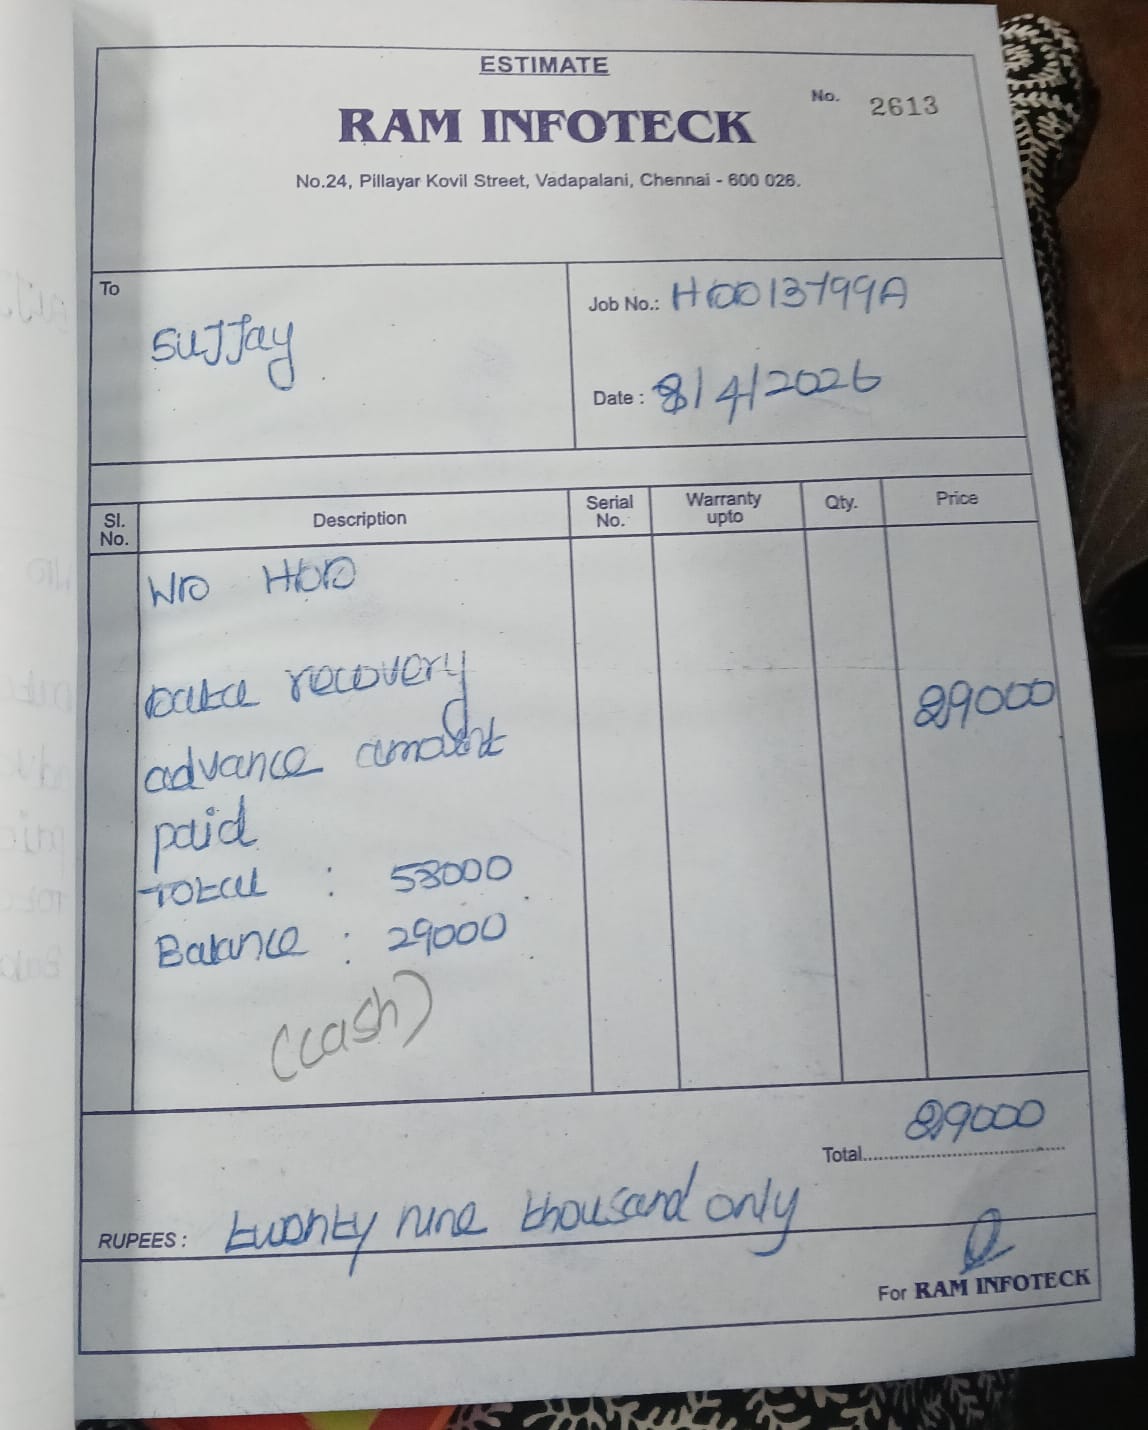 ESTIMATE
No. 2613
RAM INFOTECK
No.24, Pillayar Kovil Street, Vadapalani, Chennai - 600 026.
To
SUJJay
Job No.:
Date : 8/4/2026
Sl. No. Description Serial No. Warranty upto Qty. Price
WD HDD
Data recovery 29000
advance amount
paid
Total : 58000
Balance : 29000
(cash)
Total 29000
RUPEES : twenty nine thousand only
For RAM INFOTECK